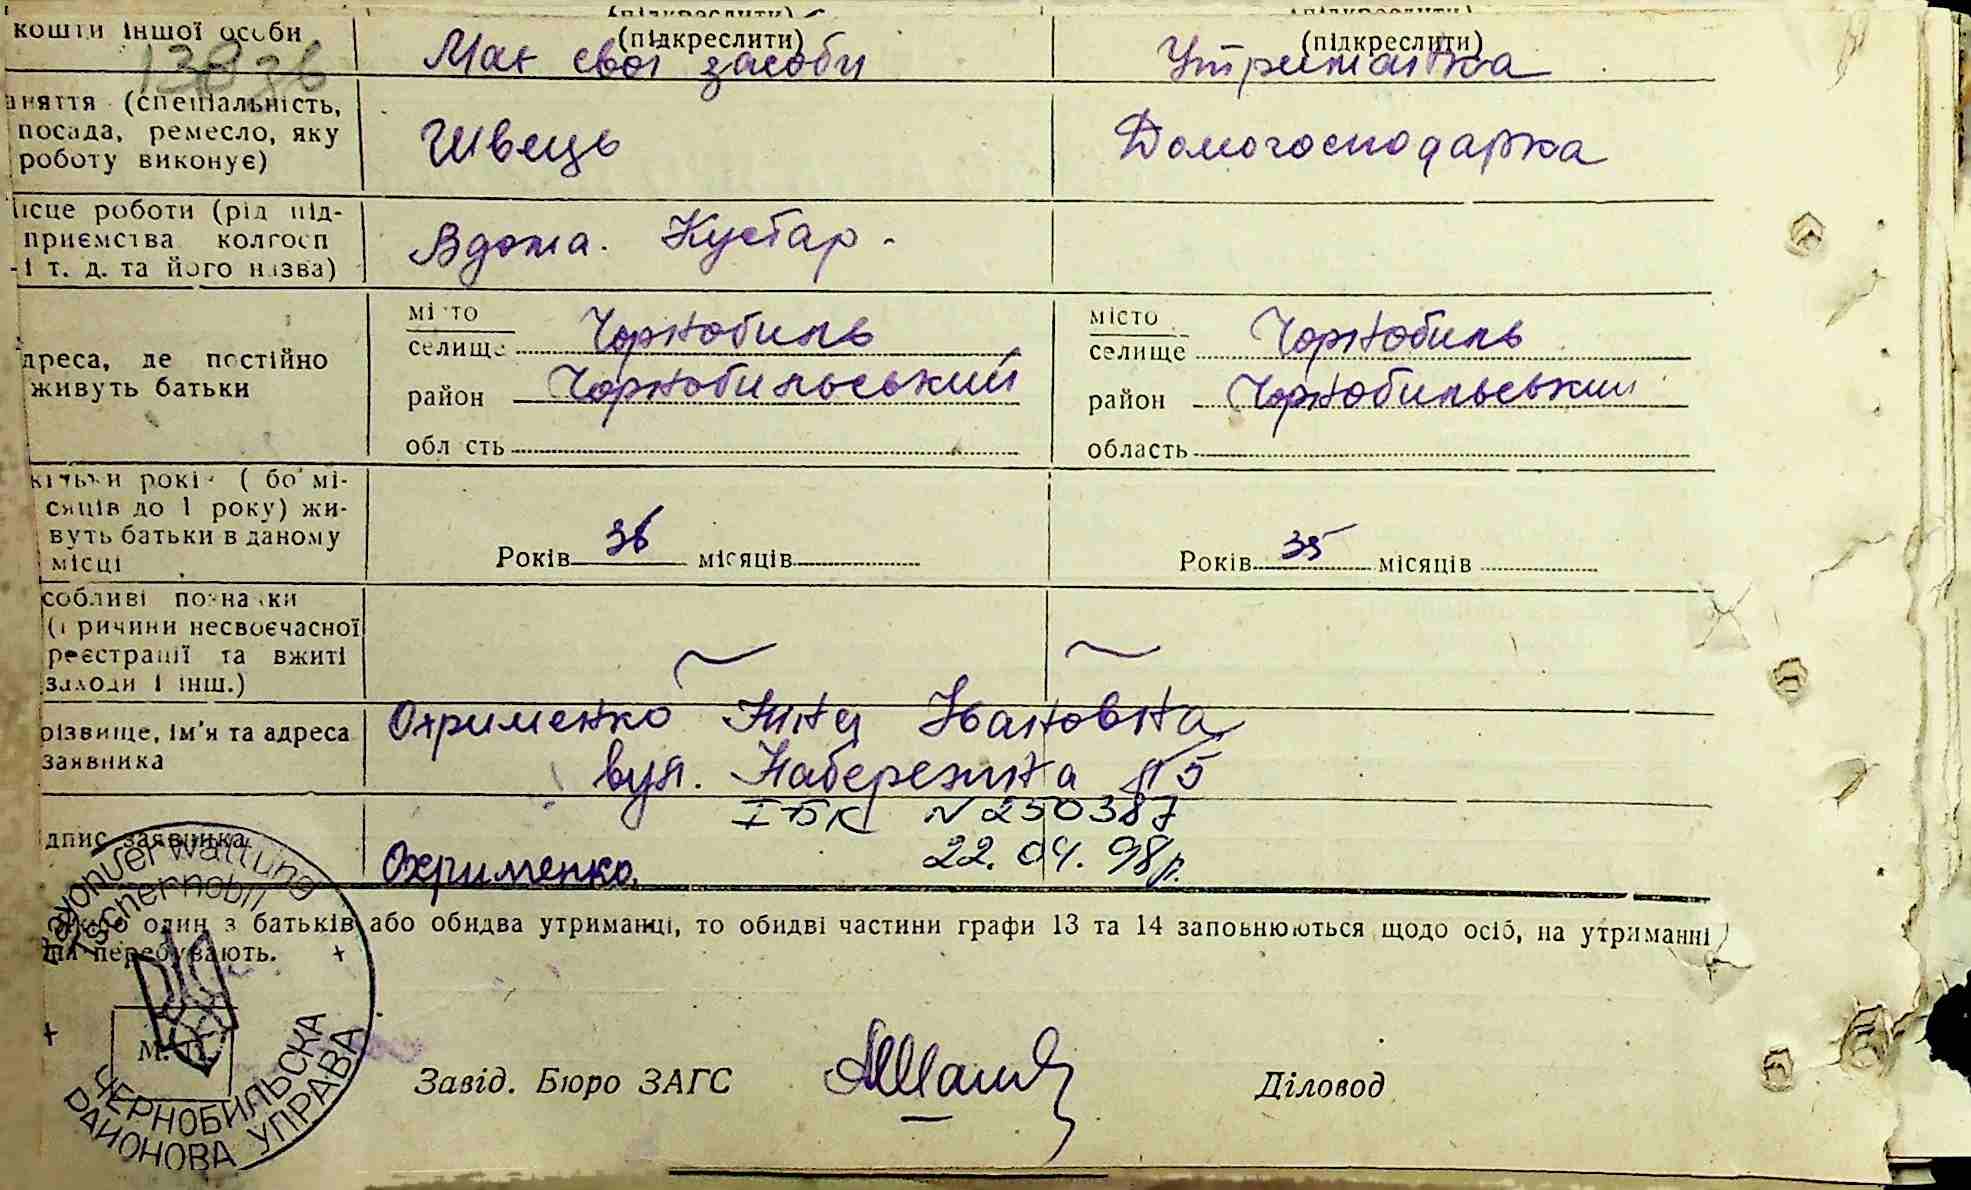 (підкреслити) (підкреслити)
кошти іншої особи (підкреслити) (підкреслити)
Має свої засоби Утриманка
аняття (спеціальність,
посада, ремесло, яку
роботу виконує)
Швець Домогосподарка
ісце роботи (рід під-
приємства колгосп
-і т. д. та його назва)
Вдома. Кустар.
місто Чорнобиль місто Чорнобиль
селище селище
дреса, де постійно
живуть батьки
район Чорнобильський район Чорнобильський
область область
кільки років ( бо мі-
сяців до 1 року) жи-
вуть батьки в даному
місці
Років 36 місяців Років 35 місяців
собливі познаки
(причини несвоєчасної
реєстрації та вжиті
заходи і інш.)
різвище, ім'я та адреса
заявника
Охрименко Нина Івановна
вул. Набережна №5
І-БК N 250387
дпис заявника
Охрименко. 22. 04. 98р.
Якщо один з батьків або обидва утриманці, то обидві частини графи 13 та 14 заповнюються щодо осіб, на утриманні
перебувають.
Rayonverwaltung
Tschernobil
М. П.
ЧЕРНОБИЛЬСКА
РАЙОНОВА УПРАВА
Завід. Бюро ЗАГС Діловод